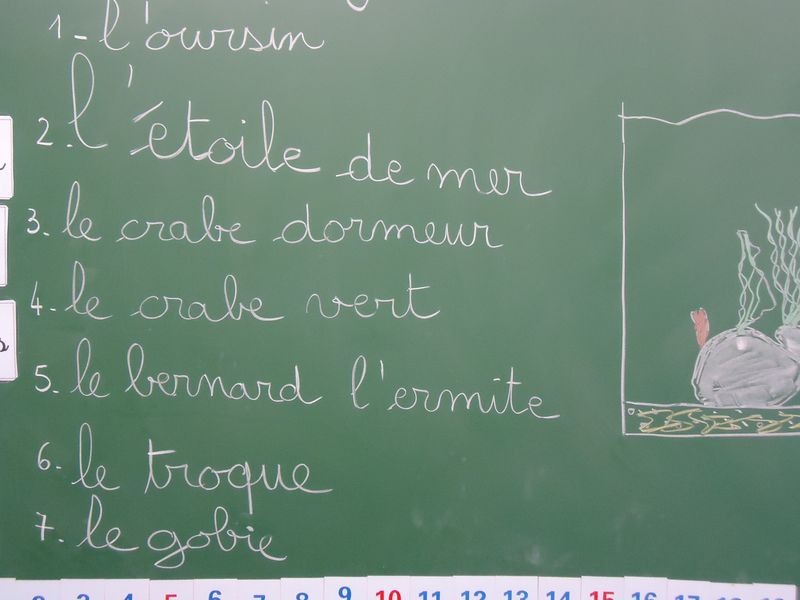 1- l'oursin
2. l'étoile de mer
3. le crabe dormeur
4. le crabe vert
5. le bernard l'ermite
6. le troque
7. le gobie
2 3 4 5 6 7 8 9 10 11 12 13 14 15 16 17 18 19